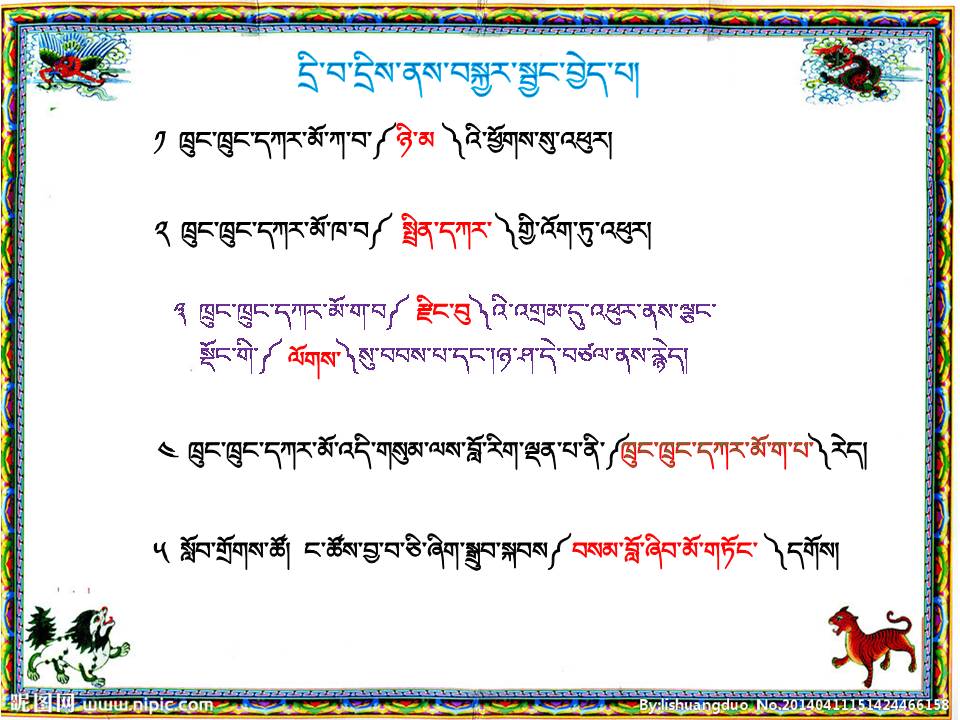 དྲི་བ་དྲིས་ནས་བསྐྱར་སྦྱང་བྱེད་པ།
༡ ཁྲུང་ཁྲུང་དཀར་མོ་ཀ་བ་༼ཉི་མ ༽འི་ཕྱོགས་སུ་འཕུར།
༢ ཁྲུང་ཁྲུང་དཀར་མོ་ཁ་བ༼ སྤྲིན་དཀར་ ༽གྱི་འོག་ཏུ་འཕུར།
༣ ཁྲུང་ཁྲུང་དཀར་མོ་ག་བ༼ རྫིང་བུ༽འི་འགྲམ་དུ་འཕུར་ནས་ལྕང་
སྡོང་གི་༼ ལོགས་༽སུ་བབས་པ་དང་།ཉ་ཤ་དེ་བཙལ་ནས་རྙེད།
༤ ཁྲུང་ཁྲུང་དཀར་མོ་འདི་གསུམ་ལས་བློ་རིག་ལྡན་པ་ནི་༼ཁྲུང་ཁྲུང་དཀར་མོ་ག་པ་༽རེད།
༥ སློབ་གྲོགས་ཚོ། ང་ཚོས་བྱ་བ་ཅི་ཞིག་སྒྲུབ་སྐབས༼བསམ་བློ་ཞིབ་མོ་གཏོང་ ༽དགོས།
昵图网 www.nipic.com
By:lishuangduo No.20140411151424466158